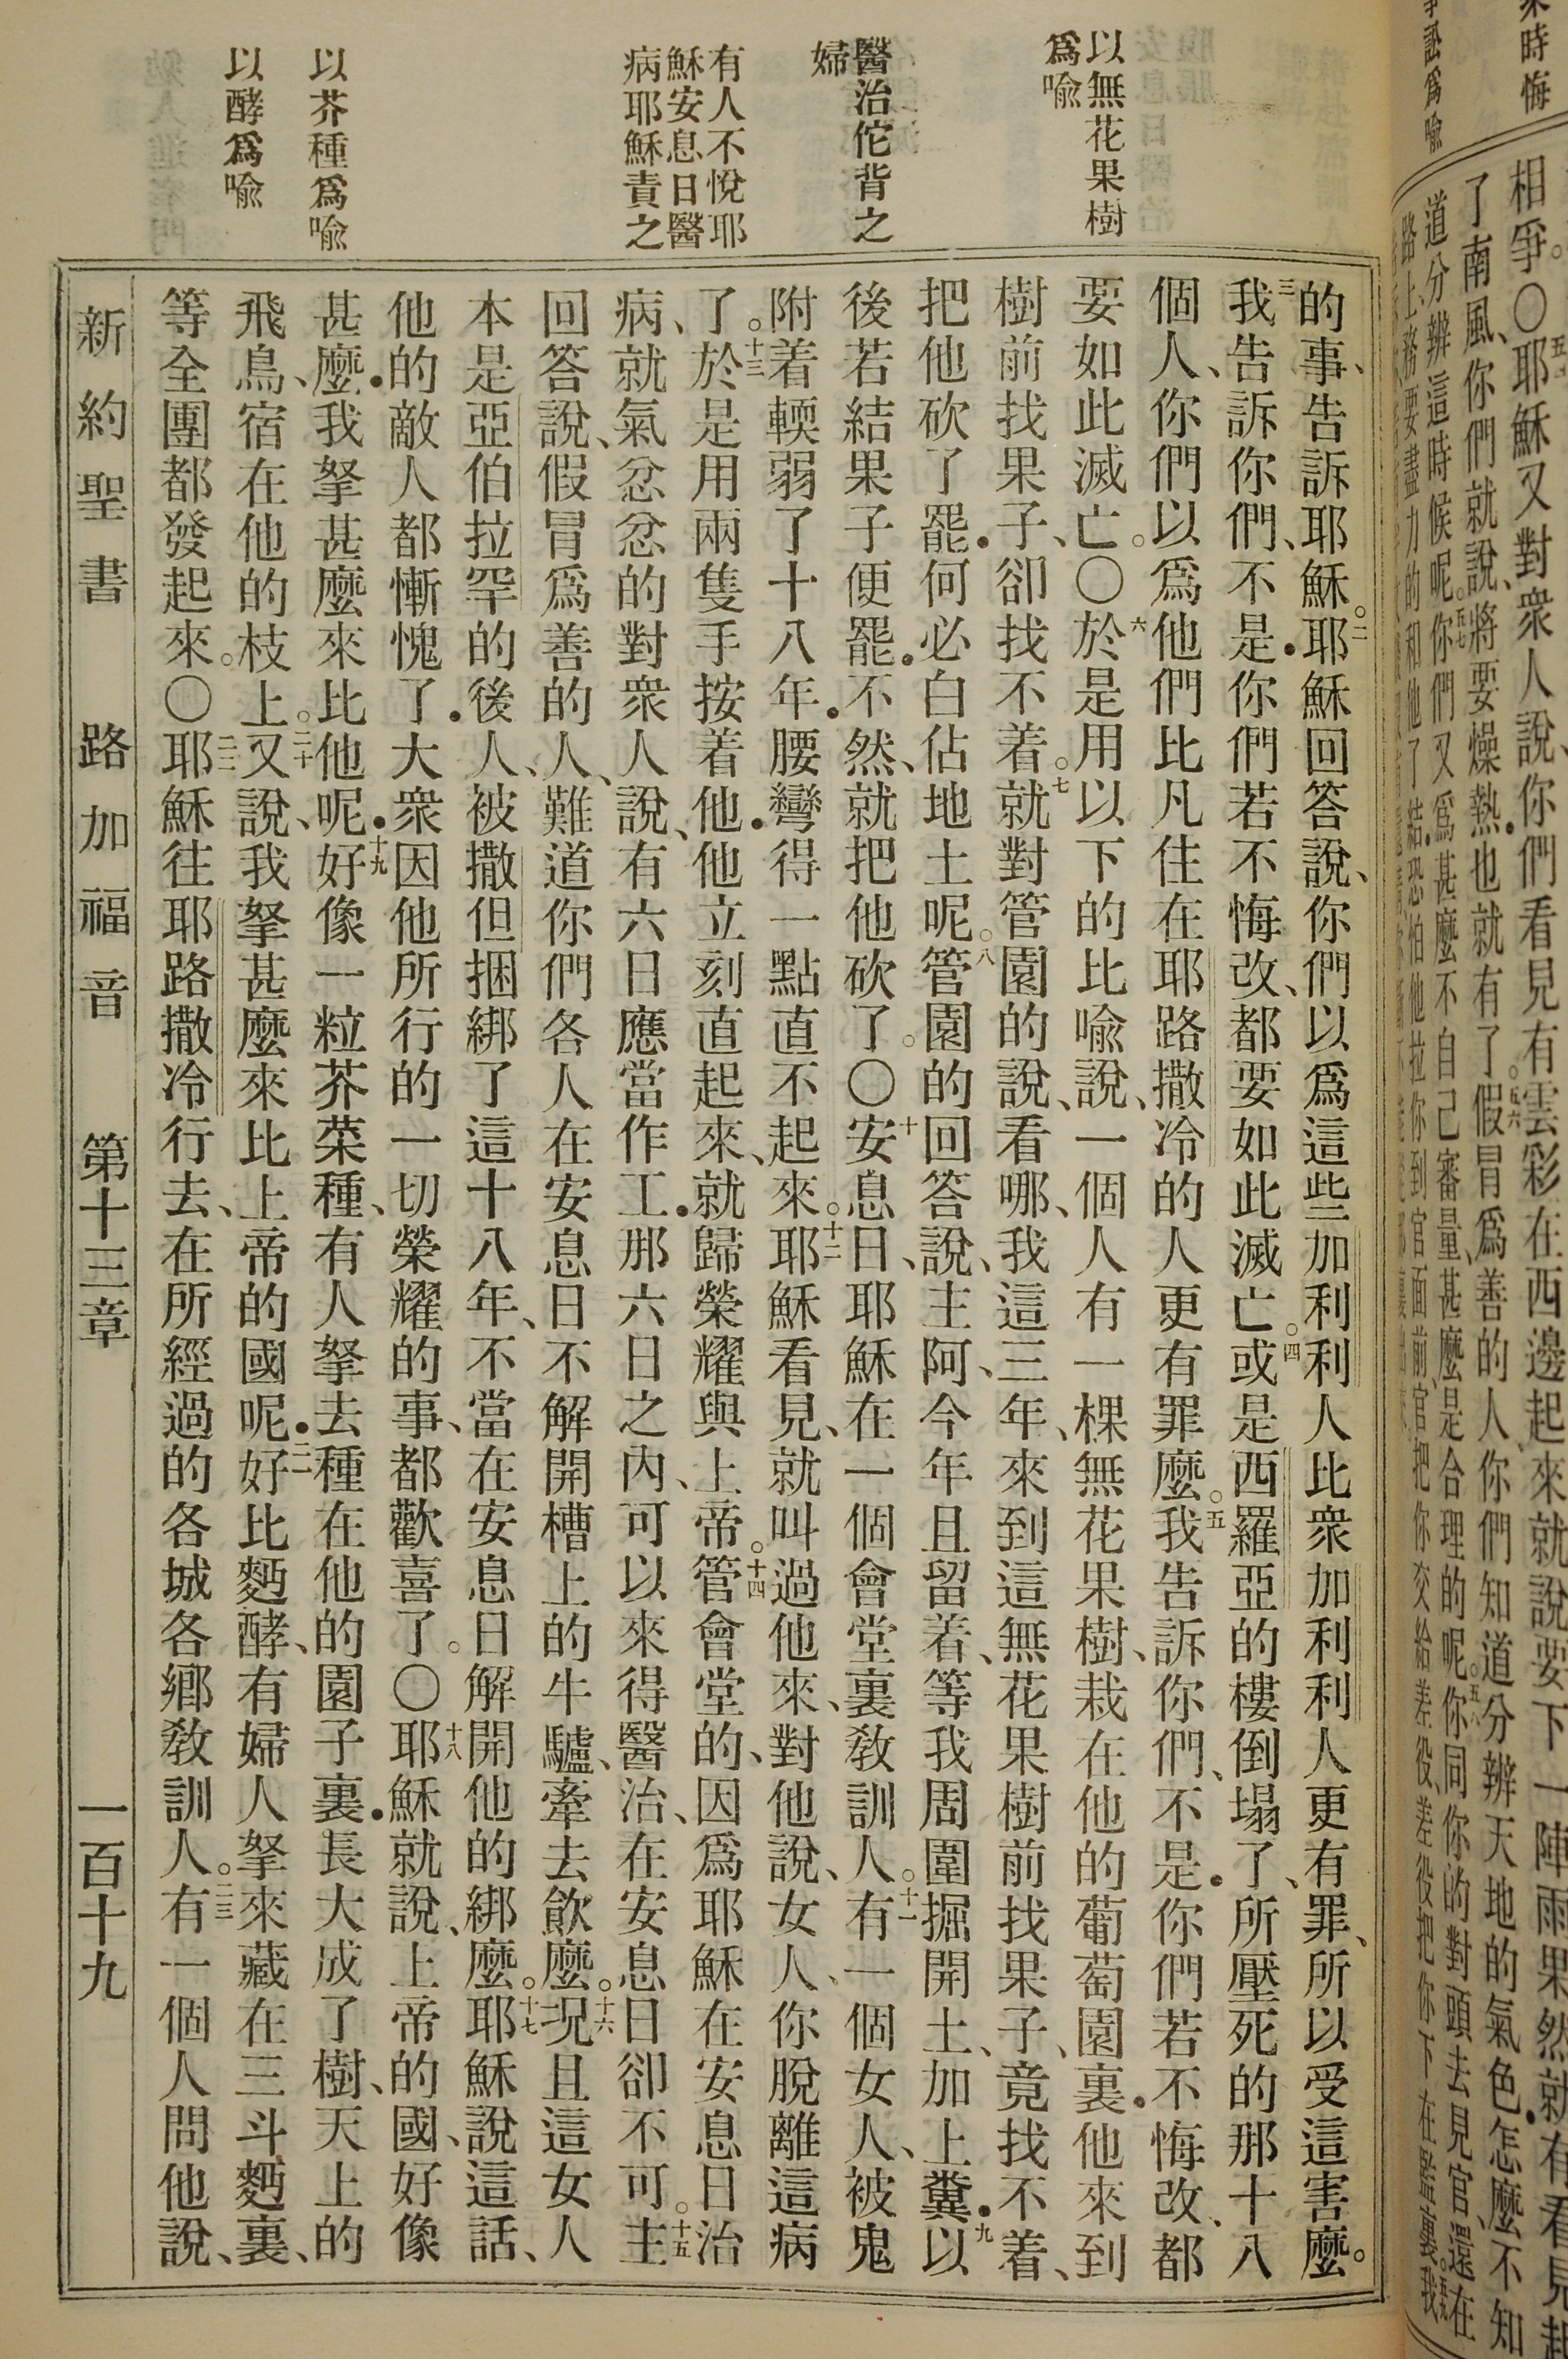 以無花果樹
爲喻
醫治佗背之
婦
有人不悅耶
穌安息日醫
病耶穌責之
以芥種爲喻
以酵爲喻
的事、告訴耶穌。二耶穌回答說、你們以爲這些加利利人比衆加利利人更有罪、所以受這害麼。
三我告訴你們、不是.你們若不悔改、都要如此滅亡。四或是西羅亞的樓倒塌了、所壓死的那十八
個人、你們以爲他們比凡住在耶路撒冷的人更有罪麼。五我告訴你們、不是.你們若不悔改、都
要如此滅亡。〇六於是用以下的比喻說、一個人有一棵無花果樹、栽在他的葡萄園裏.他來到
樹前找果子、卻找不着。七就對管園的說、看哪、我這三年、來到這無花果樹前找果子、竟找不着、
把他砍了罷.何必白佔地土呢。八管園的回答說、主阿、今年且留着、等我周圍掘開土、加上糞.九以
後若結果子便罷.不然、就把他砍了。〇十安息日、耶穌在一個會堂裏敎訓人。十一有一個女人、被鬼
附着輭弱了十八年.腰彎得一點直不起來。十二耶穌看見、就叫過他來、對他說、女人、你脫離這病
了。十三於是用兩隻手按着他.他立刻直起來、就歸榮耀與上帝。十四管會堂的、因爲耶穌在安息日治
病、就氣忿忿的對衆人說、有六日應當作工.那六日之內、可以來得醫治、在安息日卻不可。十五主
回答說、假冒爲善的人、難道你們各人在安息日不解開槽上的牛驢、牽去飮麼。十六况且這女人
本是亞伯拉罕的後人、被撒但捆綁了這十八年、不當在安息日解開他的綁麼。十七耶穌說這話、
他的敵人都慚愧了.大衆因他所行的一切榮耀的事、都歡喜了。〇十八耶穌就說、上帝的國、好像
甚麼.我拏甚麼來比他呢.十九好像一粒芥菜種、有人拏去種在他的園子裏.長大成了樹、天上的
飛鳥、宿在他的枝上。二十又說、我拏甚麼來比上帝的國呢.二一好比麪酵、有婦人拏來藏在三斗麪裏、
等全團都發起來。〇二二耶穌往耶路撒冷行去、在所經過的各城各鄕敎訓人。二三有一個人問他說、
新約聖書 路加福音 第十三章 一百十九
相爭。〇五四耶穌又對衆人說、你們看見有雲彩在西邊起來、就說要下一陣雨、果然就有.看見起
了南風、你們就說、將要燥熱.也就有了。五六假冒爲善的人、你們知道分辨天地的氣色.怎麼不知
道分辨這時候呢。五七你們又爲甚麼不自己審量、甚麼是合理的呢。五八你同你的對頭去見官、還在
路上、務要盡力的和他了結.恐怕他拉你到官面前、官把你交給差役、差役把你下在監裏。我